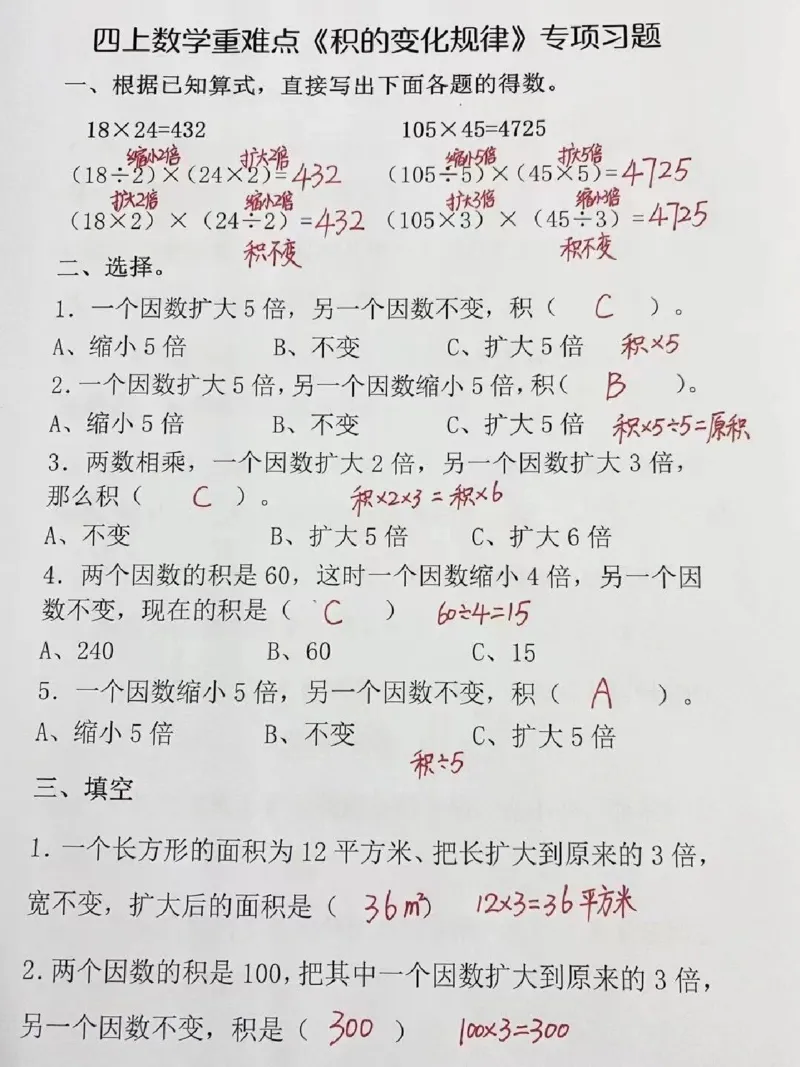 四上数学重难点《积的变化规律》专项习题
一、根据已知算式，直接写出下面各题的得数。
18×24=432 105×45=4725
缩小2倍 扩大2倍 缩小5倍 扩大5倍
(18÷2)×(24×2)=432 (105÷5)×(45×5)=4725
扩大2倍 缩小2倍 扩大3倍 缩小3倍
(18×2)×(24÷2)=432 (105×3)×(45÷3)=4725
积不变 积不变
二、选择。
1. 一个因数扩大5倍，另一个因数不变，积（ C ）。
A、缩小5倍 B、不变 C、扩大5倍 积×5
2.一个因数扩大5倍,另一个因数缩小5倍,积( B )。
A、缩小5倍 B、不变 C、扩大5倍 积×5÷5=原积
3. 两数相乘，一个因数扩大2倍，另一个因数扩大3倍，
那么积（ C ）。 积×2×3=积×6
A、不变 B、扩大5倍 C、扩大6倍
4. 两个因数的积是60，这时一个因数缩小4倍，另一个因
数不变，现在的积是（ C ） 60÷4=15
A、240 B、60 C、15
5. 一个因数缩小5倍，另一个因数不变，积（ A ）。
A、缩小5倍 B、不变 C、扩大5倍
积÷5
三、填空
1. 一个长方形的面积为12平方米、把长扩大到原来的3倍，
宽不变，扩大后的面积是（ 36m²） 12×3=36平方米
2.两个因数的积是100,把其中一个因数扩大到原来的3倍，
另一个因数不变，积是（ 300 ） 100×3=300